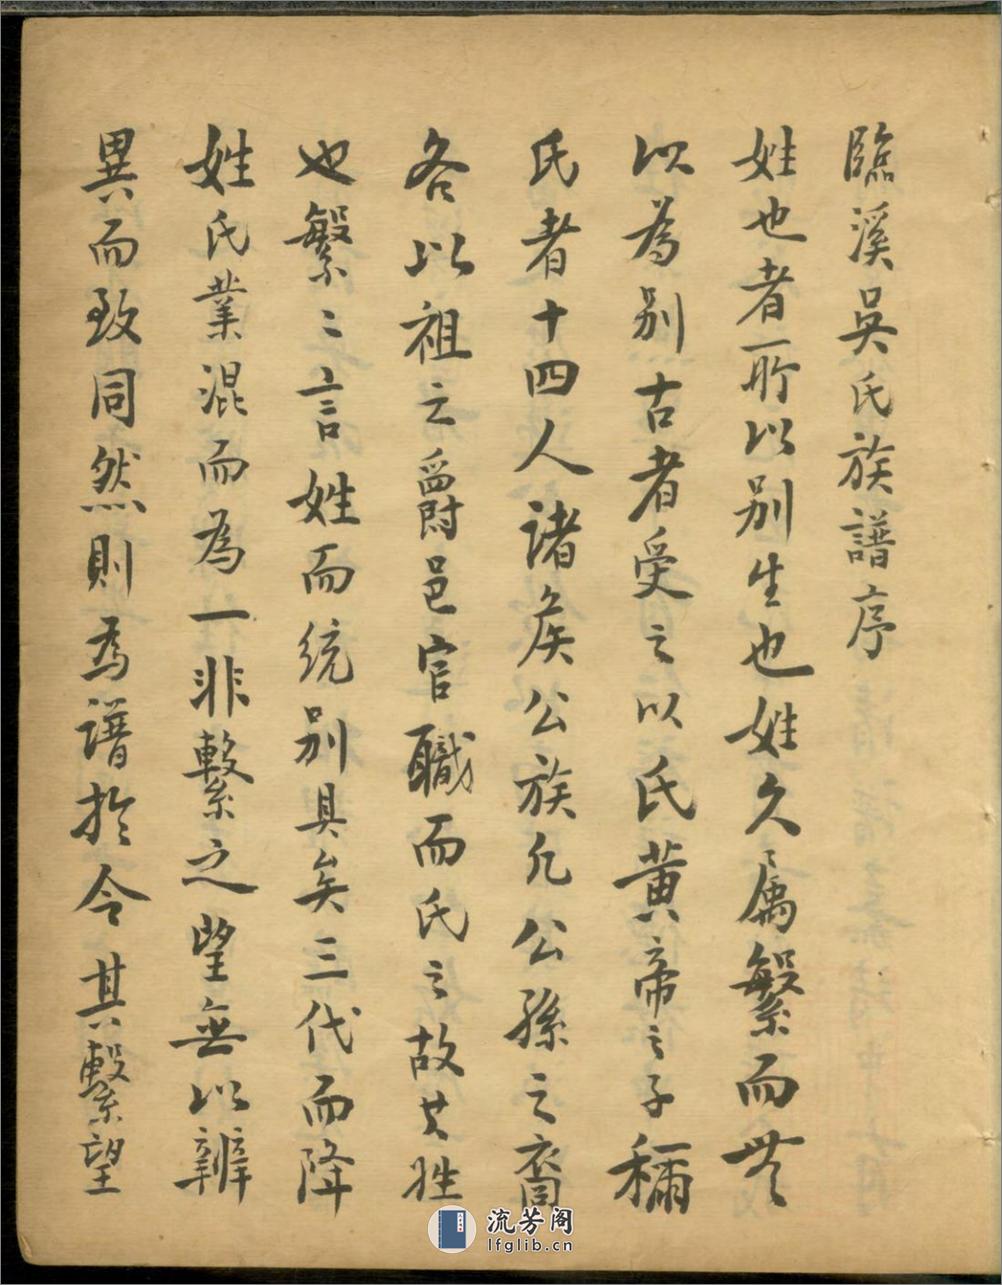 臨溪吳氏族譜序
姓也者所以别生也姓久屬繁而無
以為别古者受之以氏黄帝之子稱
氏者十四人諸矦公族凡公孫之裔
各以祖之爵邑官職而氏之故其姓
也繁〻言姓而統别具矣三代而降
姓氏業混而為一非繫之望無以辨
異而致同然則為譜於今其繫望
流芳阁
lfglib.cn